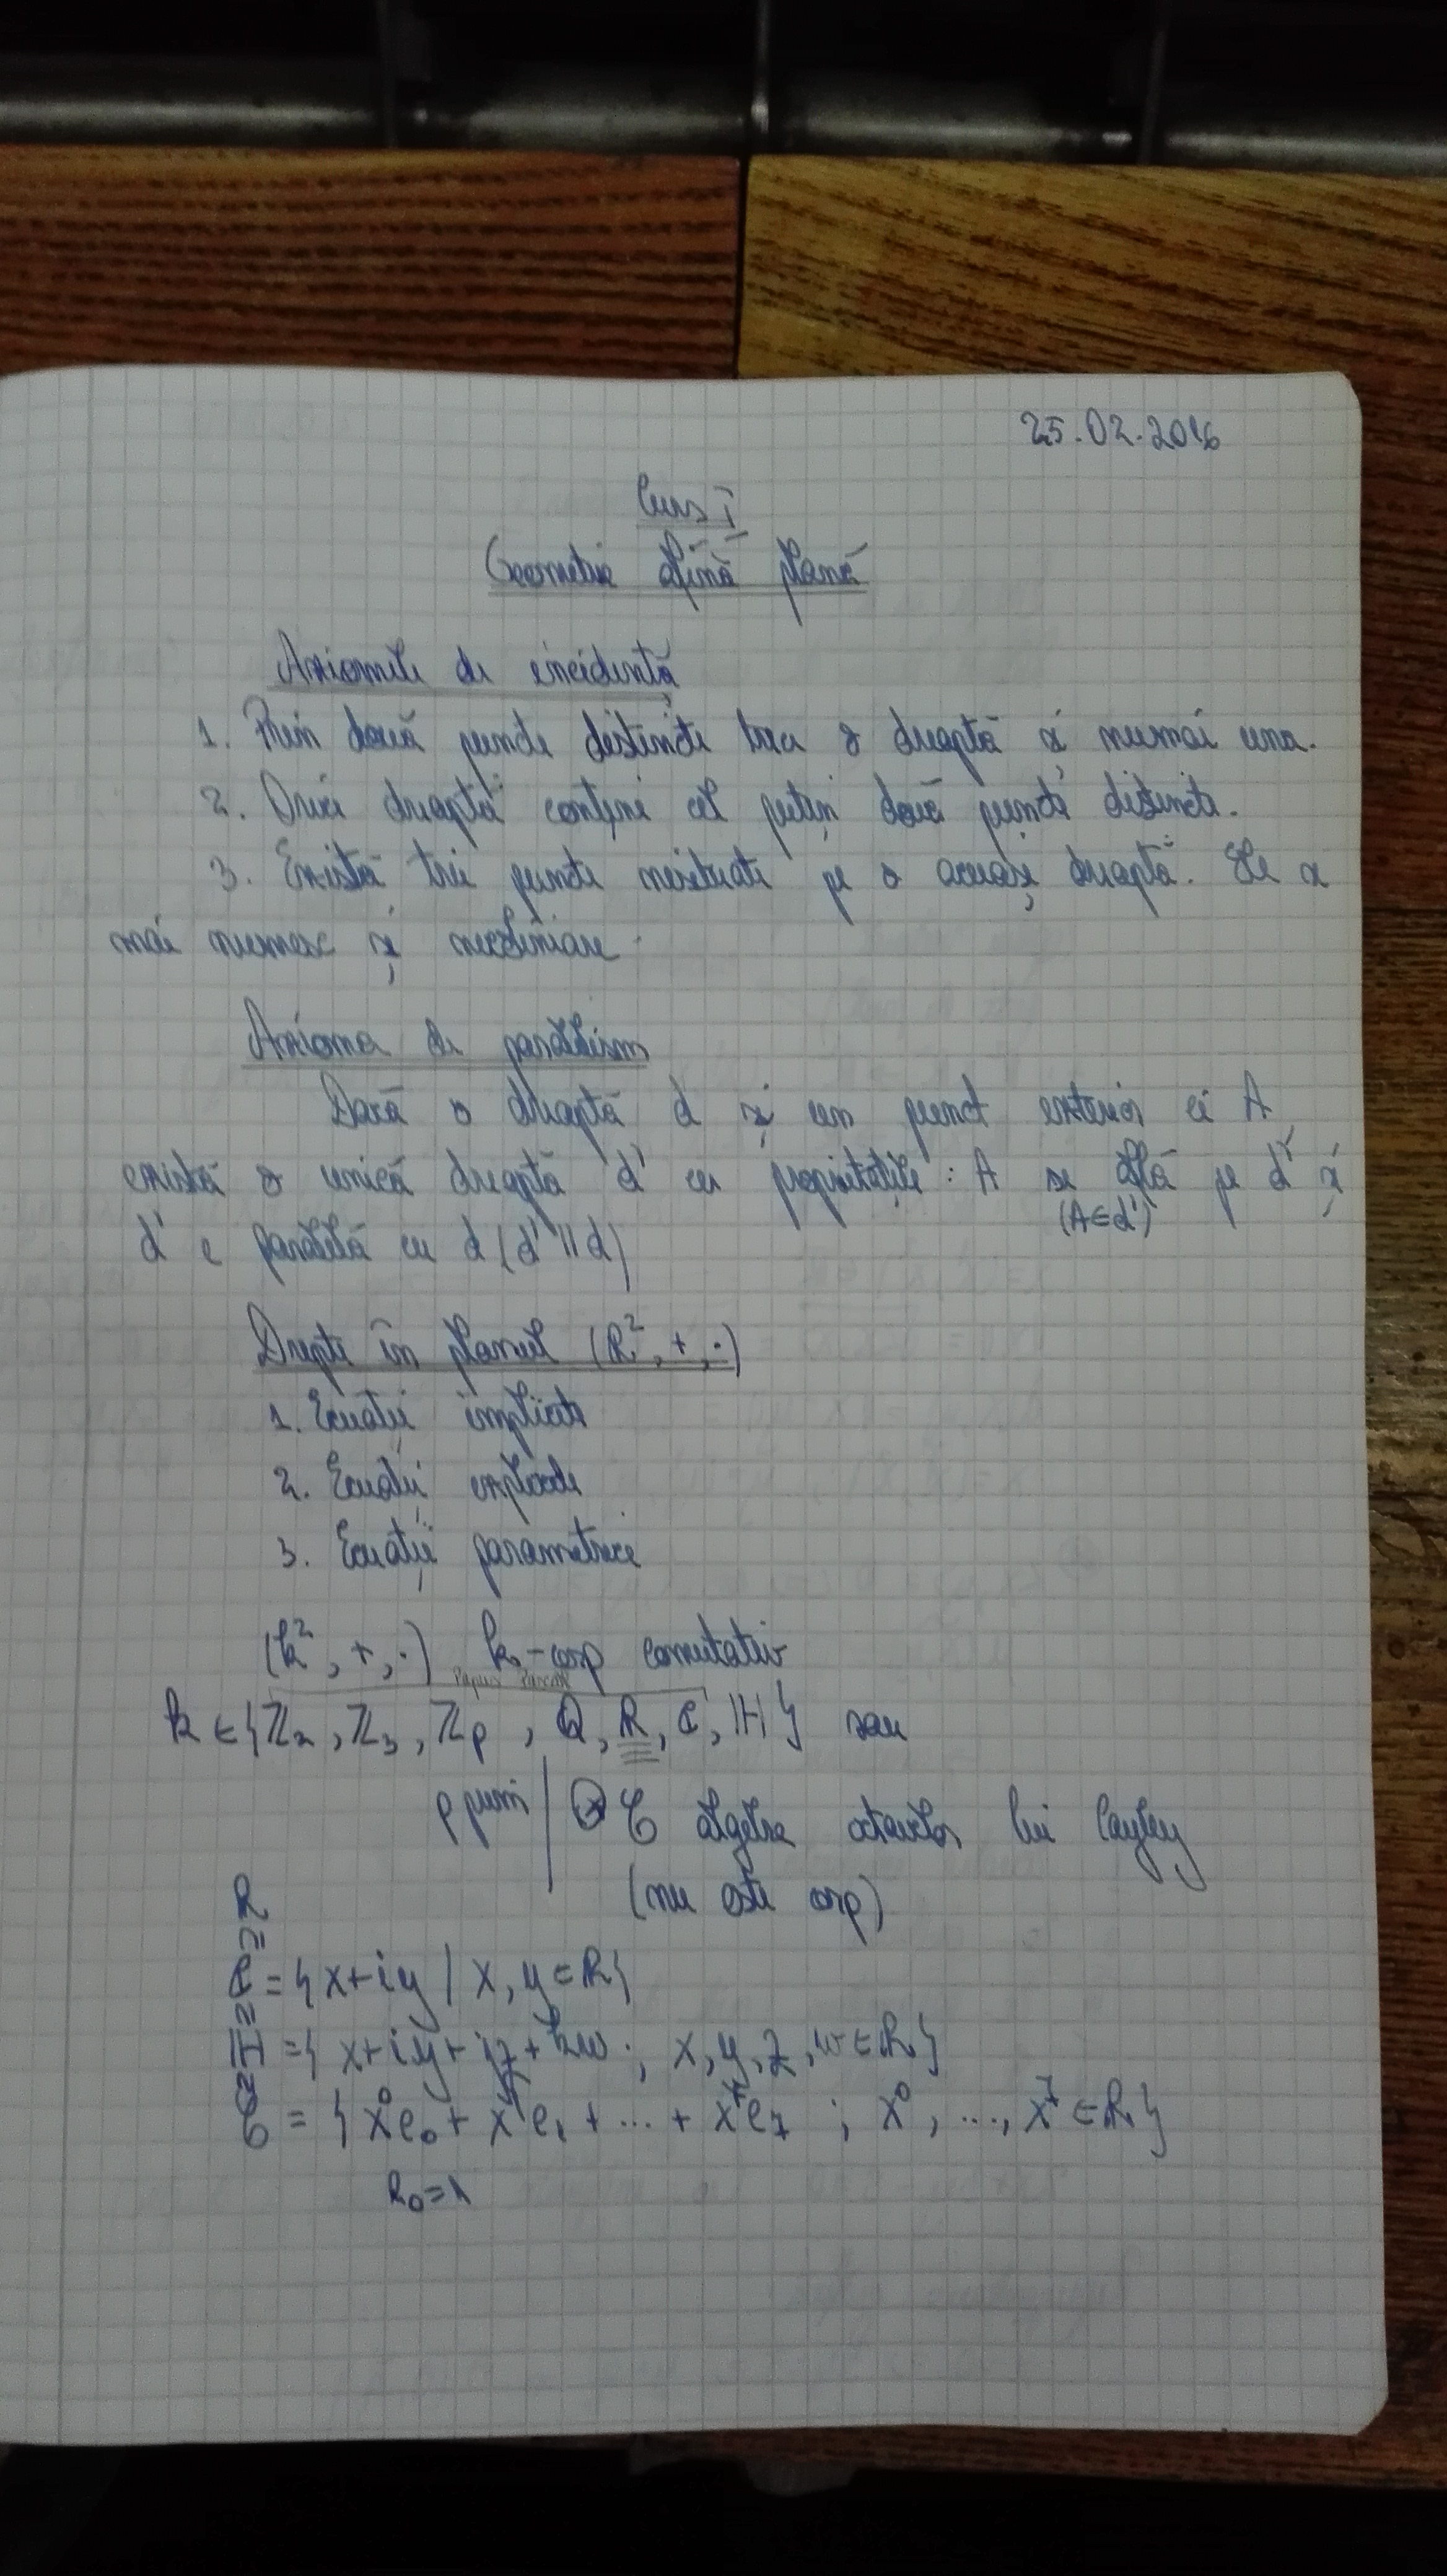 25.02.2016
Curs I
Geometrie afină plană
Axiomele de incidență
1. Prin două puncte distincte trece o dreaptă și numai una.
2. Orice dreaptă conține cel puțin două puncte distincte.
3. Există trei puncte nesituate pe o aceeași dreaptă. Ele se
mai numesc și necoliniare.
Axioma de paralelism
Dacă o dreaptă d și un punct exterior ei A,
există o unică dreaptă d' cu proprietățile: A se află pe d' și
(A∈d')
d' e paralelă cu d (d' || d)
Drepte în planul (R², +, ·)
1. Ecuații implicite
2. Ecuații explicite
3. Ecuații parametrice
(k², +, ·) k-corp comutativ
Papus Pascal
k ∈ {Z₂, Z₃, Zp, Q, R, C, H} sau
p prim | C algebra octavelor lui Cayley
(nu este corp)
R
⊆
C = {x+iy / x, y ∈ R}
⊆
H = {x+iy+jz+kw ; x, y, z, w ∈ R}
⊆
C = {x⁰e₀ + x¹e₁ + ... + x⁷e₇ ; x⁰, ..., x⁷ ∈ R}
e₀=1